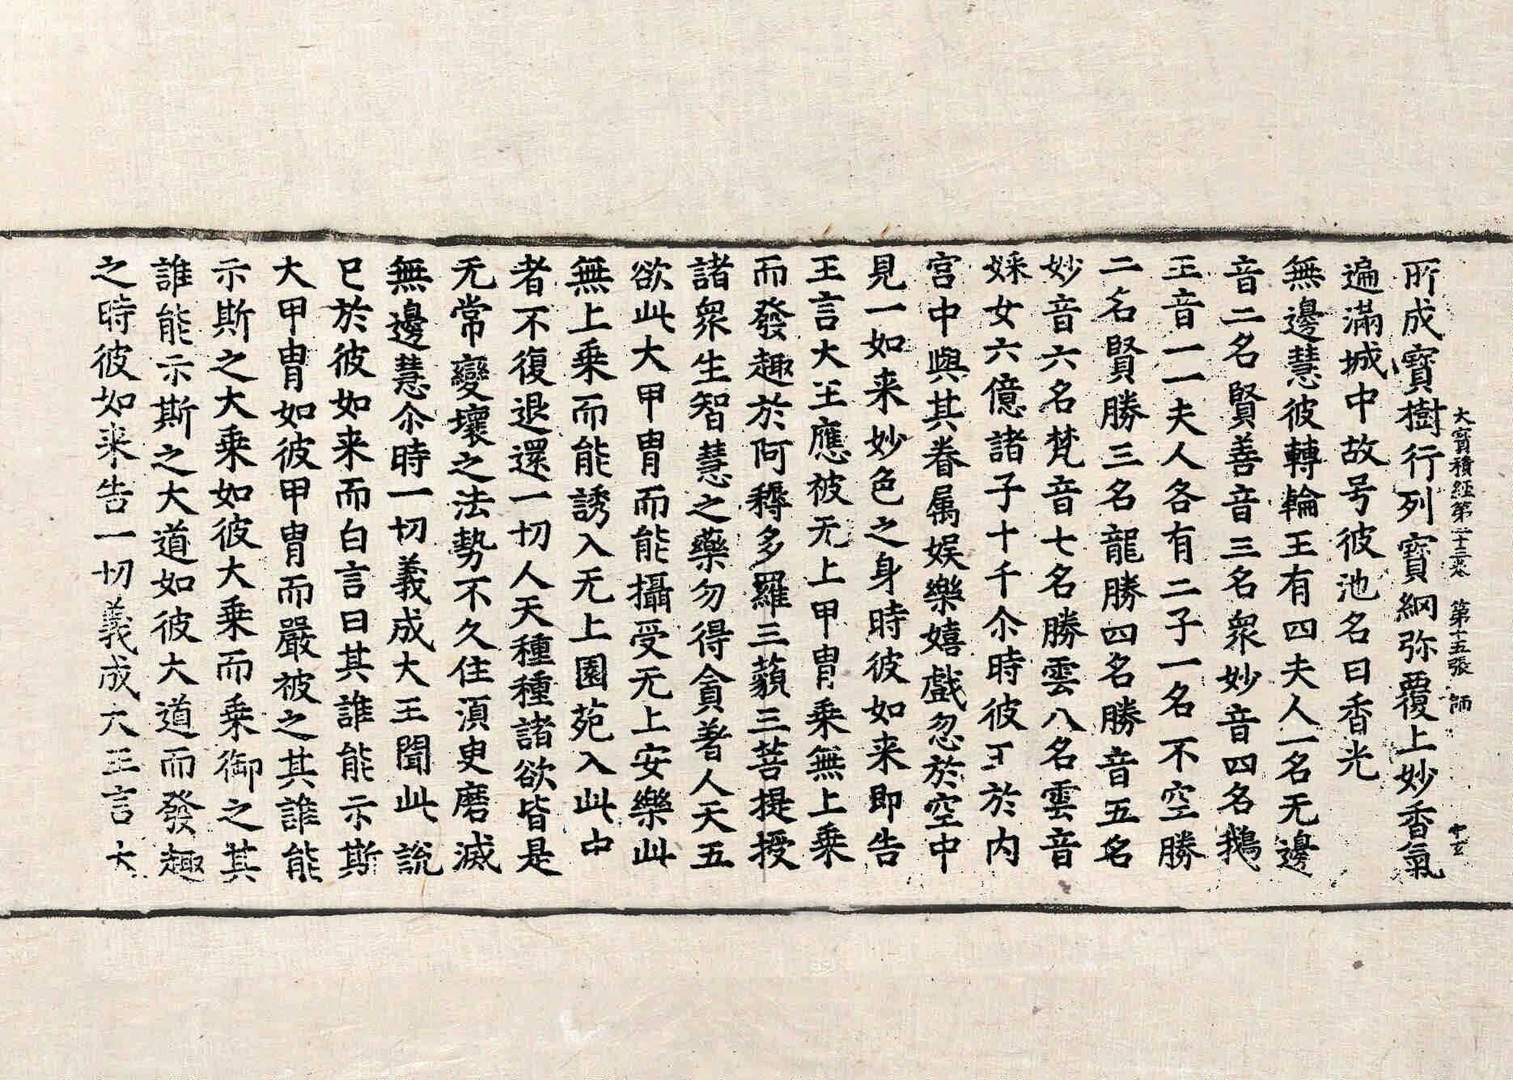 大寶積經第二十三卷 第十五張 師
所成寶樹行列寶網弥覆上妙香氣
遍滿城中故号彼池名曰香光
無邊慧彼轉輪王有四夫人一名无邊
音二名賢善音三名衆妙音四名鵝
王音一一夫人各有二子一名不空勝
二名賢勝三名龍勝四名勝音五名
妙音六名梵音七名勝雲八名雲音
婇女六億諸子十千尒時彼王於内
宫中與其眷属娱樂嬉戲忽於空中
見一如来妙色之身時彼如来即告
王言大王應被无上甲冑乗無上乗
而發趣於阿耨多羅三藐三菩提授
諸衆生智慧之藥勿得貪著人天五
欲此大甲冑而能攝受无上安樂此
無上乗而能誘入无上園苑入此中
者不復退還一切人天種種諸欲皆是
无常變壞之法勢不久住湏臾磨滅
無邊慧尒時一切義成大王聞此說
已於彼如来而白言曰其誰能示斯
大甲冑如彼甲冑而嚴被之其誰能
示斯之大乗如彼大乗而乗御之其
誰能示斯之大道如彼大道而發趣
之時彼如来告一切義成大王言大